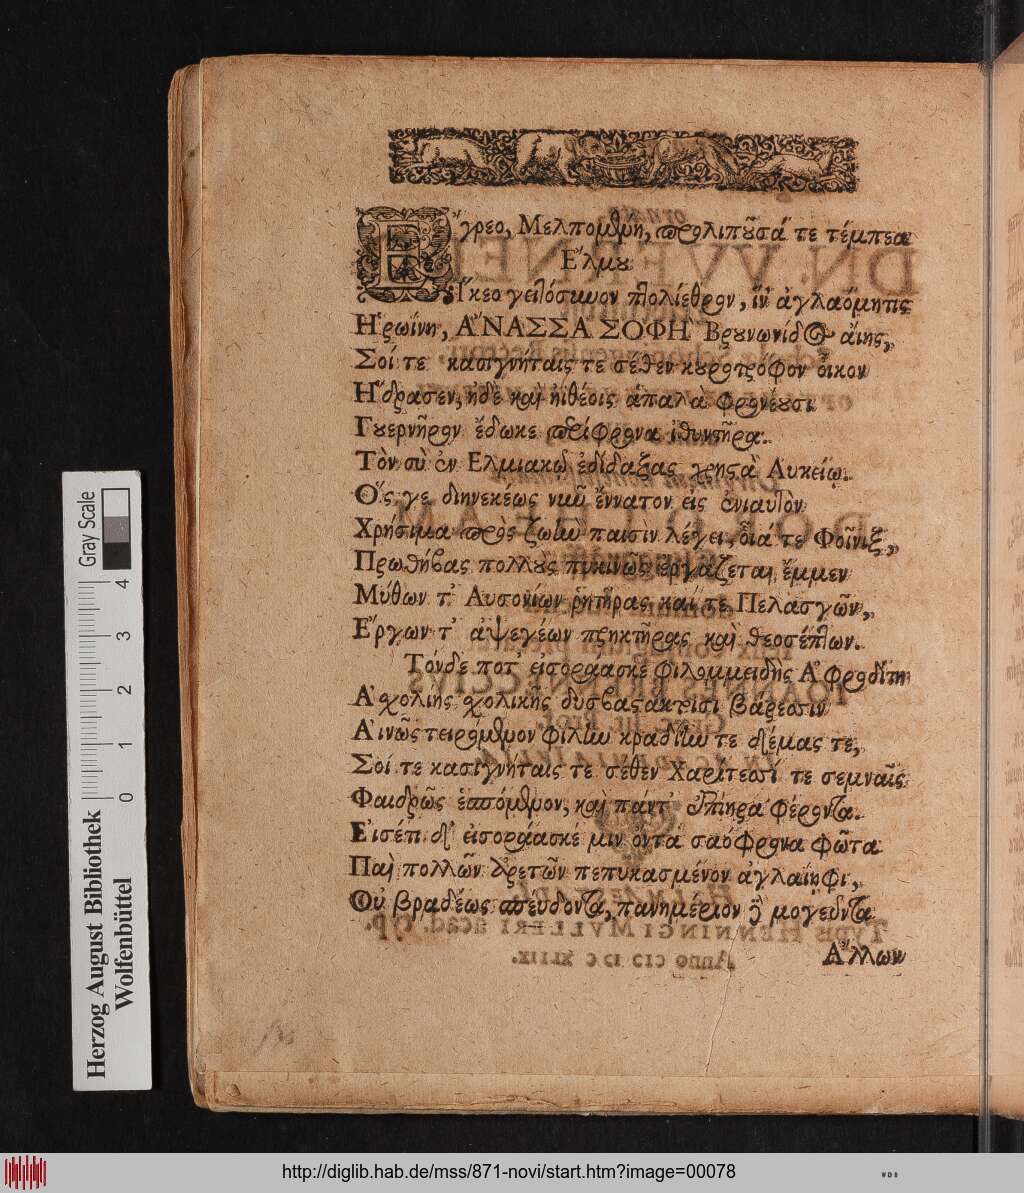 Ἔγρεο, Μελπομένη, προλιποῦσά τε τέμπεα
Ἕλμου
Ἵκεο γειτόσυνον πτολίεθρον, ἵν' ἀγλαόμητις
Ἡρωΐνη, ἌΝΑΣΣΑ ΣΟΦΗ Βρουνωνίδος αἴης,
Σοί τε κασιγνήταις τε σέθεν κουροτρόφον οἶκον
Ἥδρασεν, ἠδὲ καὶ ἠϊθέοις ἁπαλὰ φρονέουσι
Γουερνῆρον ἔδωκε περίφρονα ἰθυντῆρα.
Τὸν σὺ ἐν Ἐλμιακῷ ἐδίδαξας χρηστὰ Λυκείῳ.
Ὅς γε διηνεκέως νῦν ἔννατον εἰς ἐνιαυτὸν
Χρήσιμα πρὸς ζωὴν παισὶν λέγει, οἷά τε Φοῖνιξ,
Πρωθήβας πολλοὺς πυκινῶς ἐργάζεται ἔμμεν
Μύθων τ' Αὐσονίων ῥητῆρας καί τε Πελασγῶν,
Ἔργων τ' ἀψεγέων πρηκτῆρας καὶ θεοσέπτων.
Τόνδε ποτ' εἰσοράασκε φιλομμειδὴς Ἀφροδίτη
Ἀσχολίης σχολικῆς δυσβαστάκτοισι βάρεσσιν
Αἰνῶς τειρόμενον φίλην κραδίην τε δέμας τε,
Σοί τε κασιγνήταις τε σέθεν Χαρίτεσσί τε σεμναῖς
Φαιδρῶς ἑσπόμενον, καὶ πάντ' ἐπίηρα φέροντα.
Εἰσέτι δ' εἰσοράασκέ μιν ὄντα σαόφρονα φῶτα
Παὶ πολλῶν ἀρετῶν πεπυκασμένον ἀγλαΐηφι,
Οὐ βραδέως σπεύδοντα, πανημέριον δὲ μογεῦντα
Ἄλλων
Gray Scale
4 3 2 1 0
Herzog August Bibliothek
Wolfenbüttel
http://diglib.hab.de/mss/871-novi/start.htm?image=00078